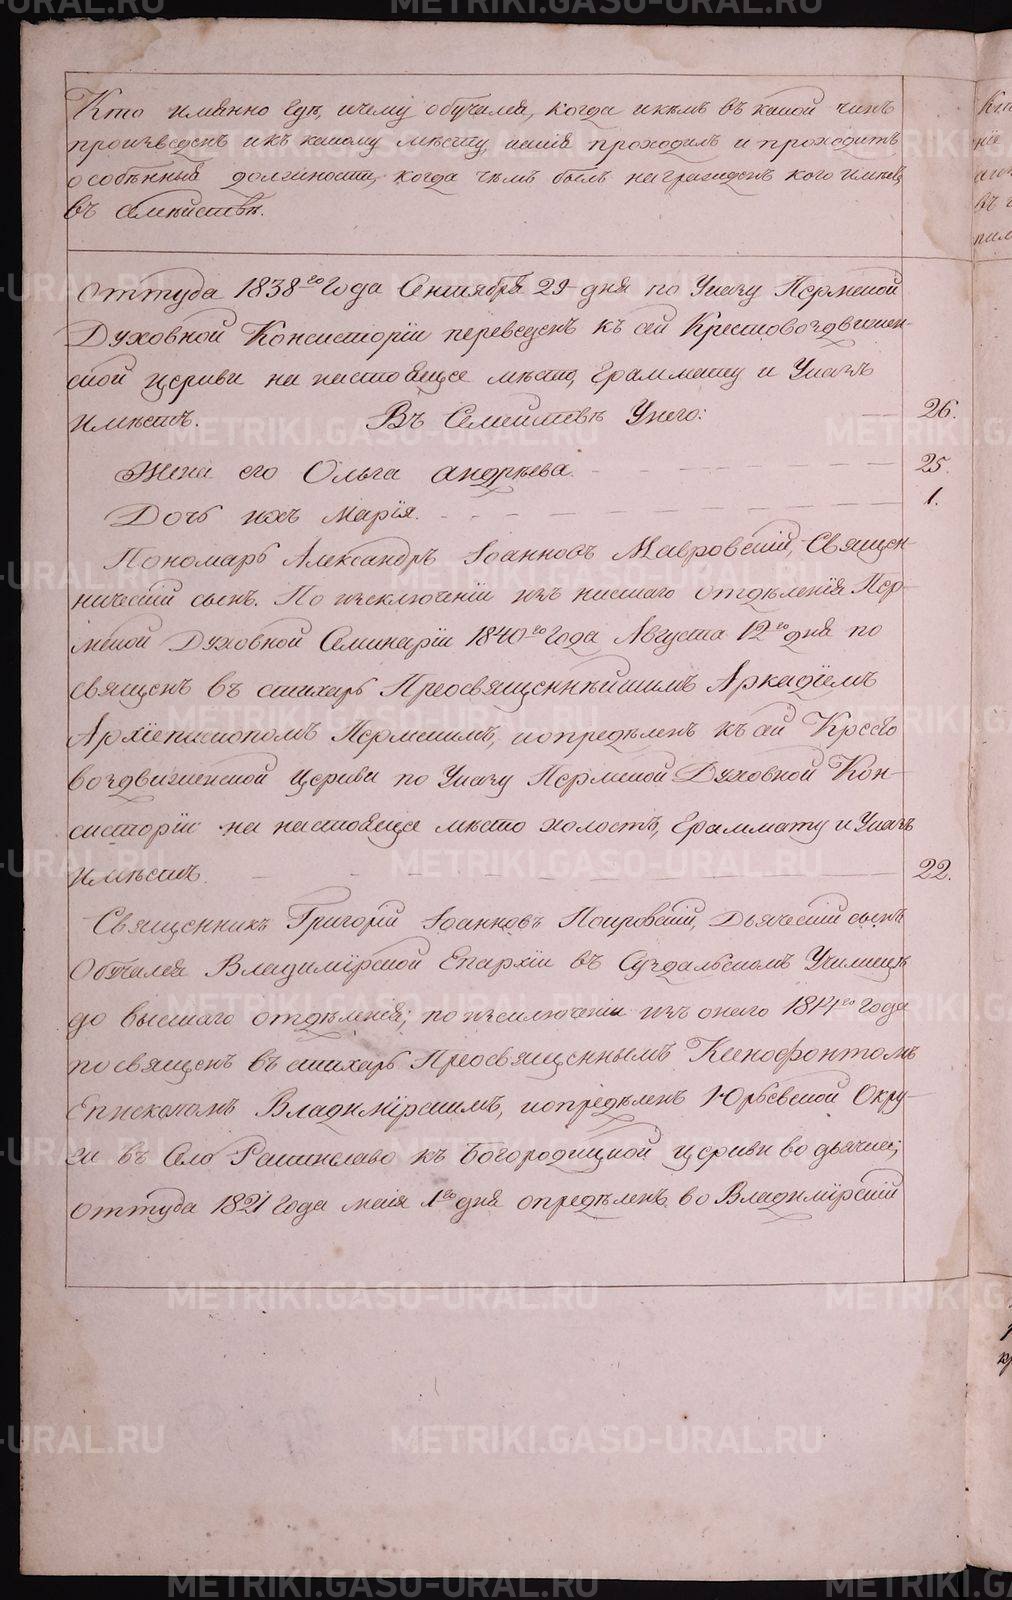 Кто имянно гдѣ, ичему обучался, когда икѣмъ въ какой чинъ
произведенъ икъ какому мѣсту, какія проходилъ и проходитъ
особѣнныя должности, когда чѣмъ былъ награжденъ кого имѣетъ
въ семѣйствѣ.
оттуда 1838го Года Сентября 29 дня по Указу Пермской
Духовной Консисторіи переведенъ къ сей Крестовоздвижен-
ской церкви на настоящее мѣсто, Граммату и Указъ
имѣетъ. Въ Семействѣ Унего: 26.
Жена его Ольга андрѣева 25.
Дочь ихъ Марія. 1.
Пономарь Александръ Іоанновъ Мавровскій, Священ-
ническій сынъ. По изключеніи изъ нисшаго отдѣленія Пер-
мской Духовной Семинаріи 1840го Года Августа 12го дня по
священъ въ стихарь Преосвященнѣйшимъ Аркадіемъ
Архіепископомъ Пермскимъ, иопредѣленъ къ сей Кресто
воздвиженской Церкви по Указу Пермской Духовной Кон-
систоріи на настоящее мѣсто холостъ, Граммату и Указъ
имѣетъ. 22.
Священникъ Григорій Іоанновъ Покровскій, Дьяческій сынъ
Обучался Владимірской Епархіи въ Суздальскомъ Училищѣ
до высшаго отдѣленія; поизключеніи изъ онаго 1814го года
посвященъ въ стихарь Преосвященнымъ Ксенофонтомъ
Епископомъ Владимірскимъ, иопредѣленъ Юрьевской Окру-
ги въ Село къ Богородицкой церкви во дьячка;
оттуда 1821 Года маія 1го дня опредѣленъ во Владимірскій
METRIKI.GASO-URAL.RU